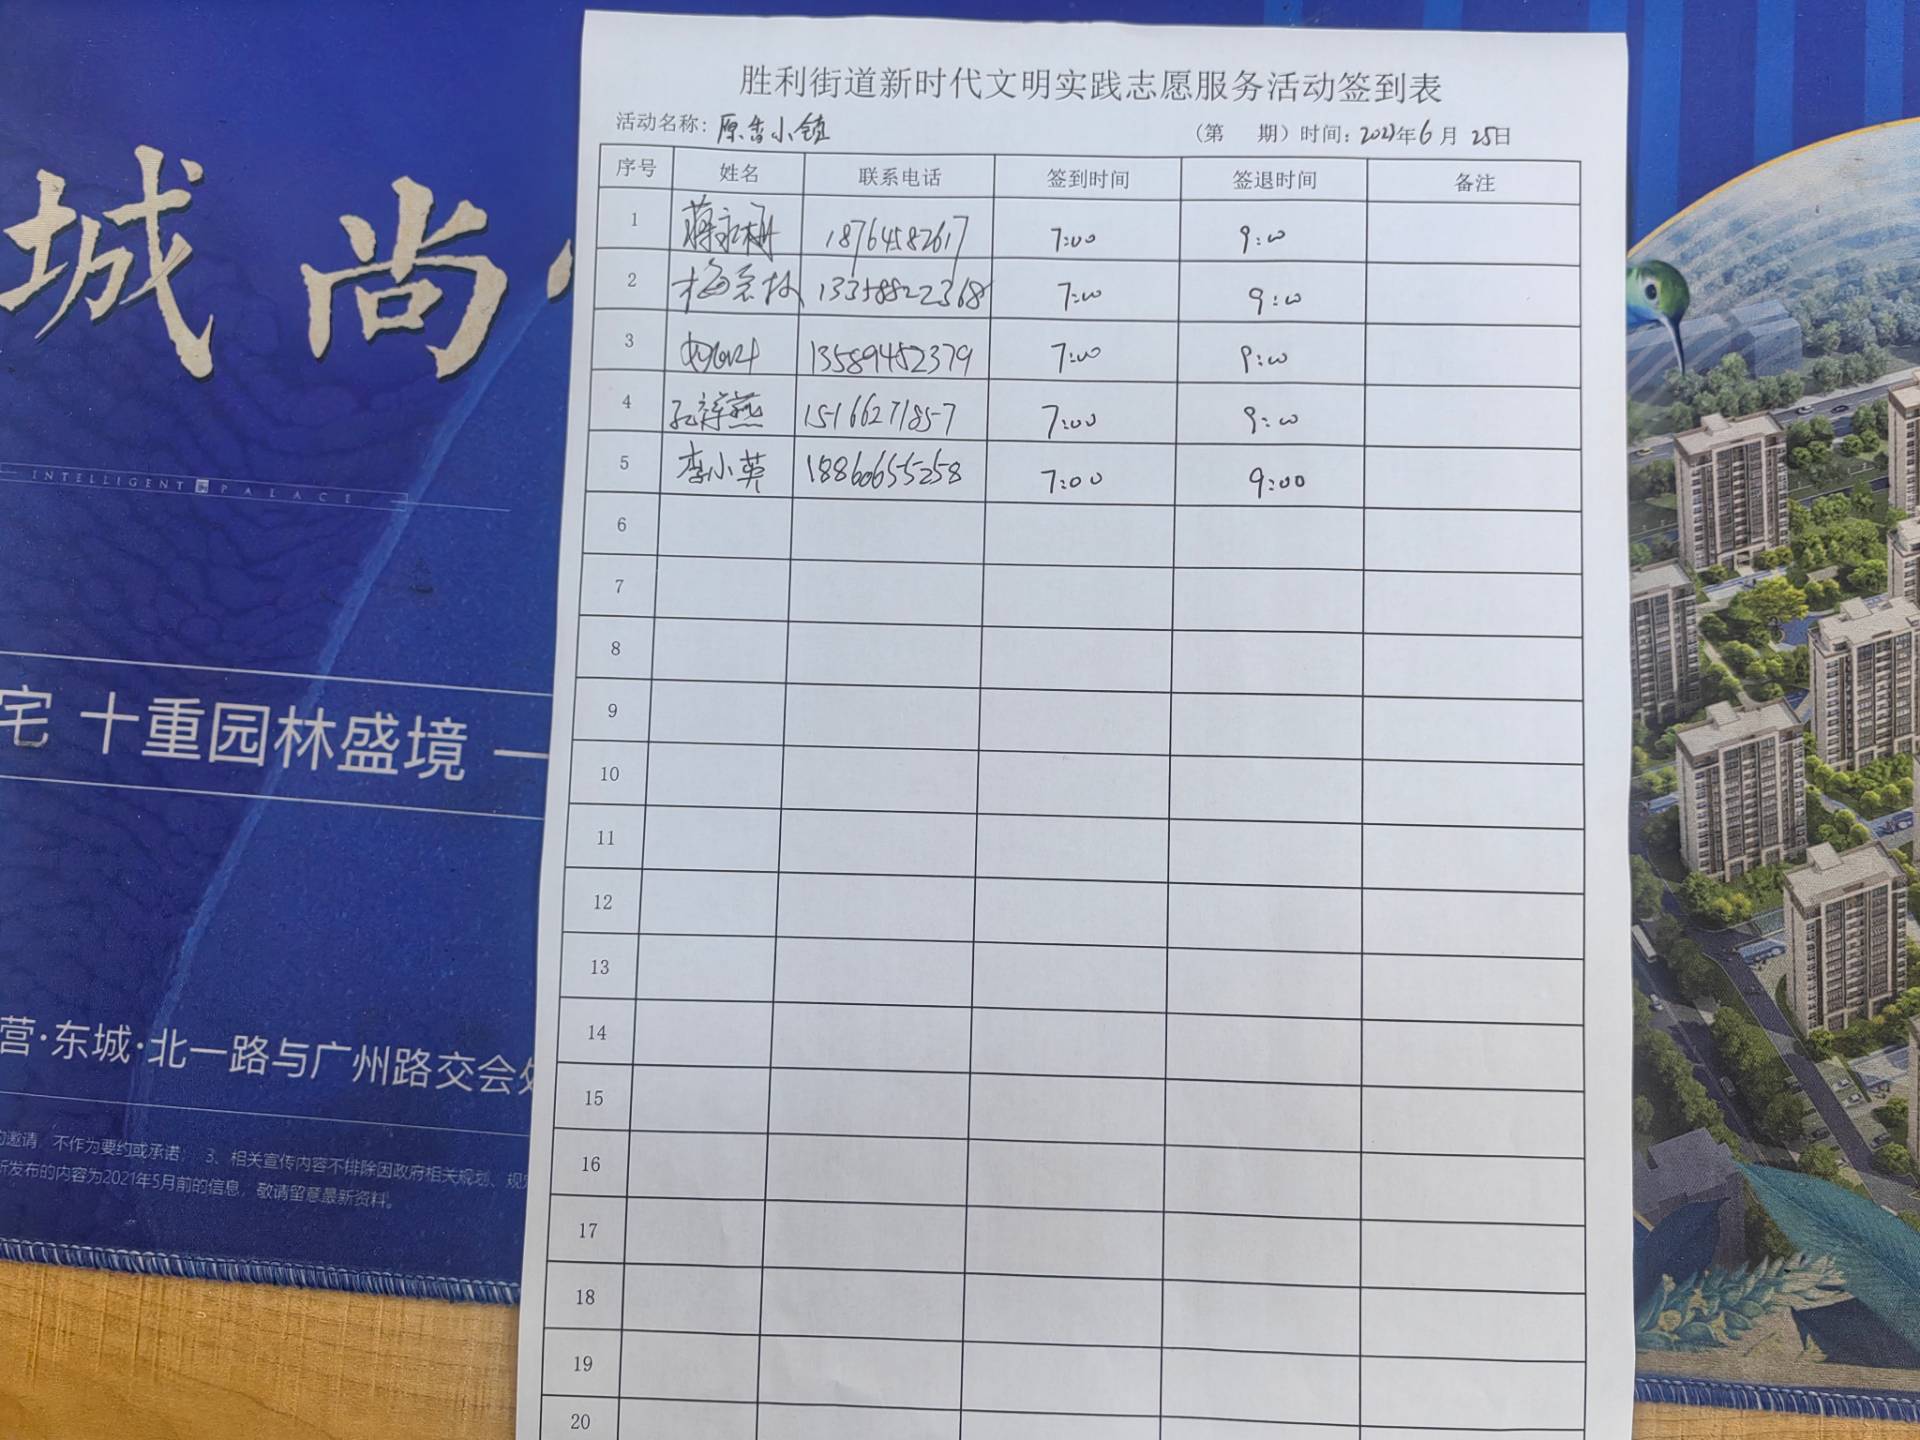 胜利街道新时代文明实践志愿服务活动签到表
活动名称：原香小镇 （第 期）时间：2021年6月25日
序号 姓名 联系电话 签到时间 签退时间 备注
1 18764582617 7:00 9:00
2 13358822368 7:00 9:00
3 13589452379 7:00 9:00
4 15166271857 7:00 9:00
5 李小英 18860655258 7:00 9:00
6
7
8
9
10
11
12
13
14
15
16
17
18
19
20
城尚
INTELLIGENT PALACE
宅 十重园林盛境 一
营·东城·北一路与广州路交会处
邀请，不作为要约或承诺； 3、相关宣传内容不排除因政府相关规划、规
所发布的内容为2021年5月前的信息，敬请留意最新资料。